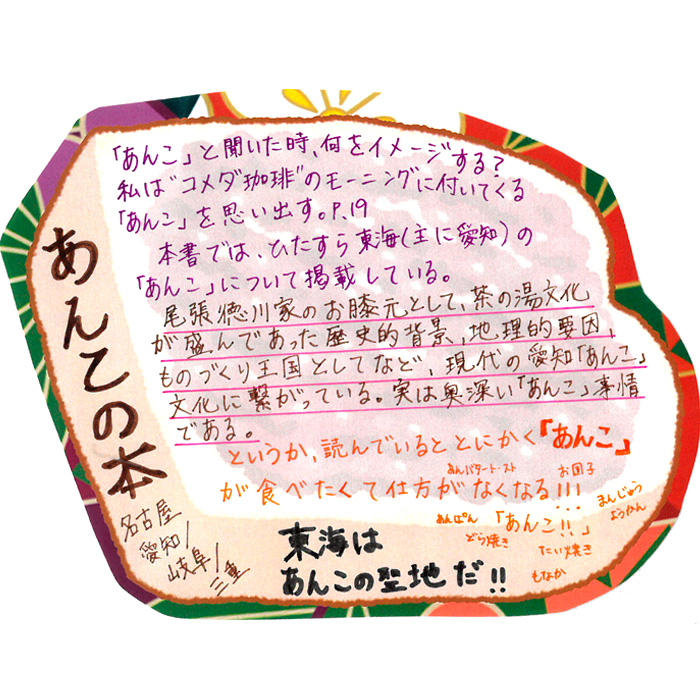 あんこの本
名古屋
愛知/
岐阜/
三重
「あんこ」と聞いた時、何をイメージする?
私は"コメダ珈琲"のモーニングに付いてくる
「あんこ」を思い出す。P.19
本書では、ひたすら東海(主に愛知)の
「あんこ」について掲載している。
尾張徳川家のお膝元として、茶の湯文化
が盛んであった歴史的背景、地理的要因、
ものづくり王国としてなど、現代の愛知「あんこ」
文化に繋がっている。実は奥深い「あんこ」事情
である。
というか、読んでいるととにかく「あんこ」
あんバタートースト お団子
が食べたくて仕方がなくなる!!!
あんぱん 「あんこ!!」 まんじゅう
ようかん
どら焼き たい焼き
もなか
東海は
あんこの聖地だ!!